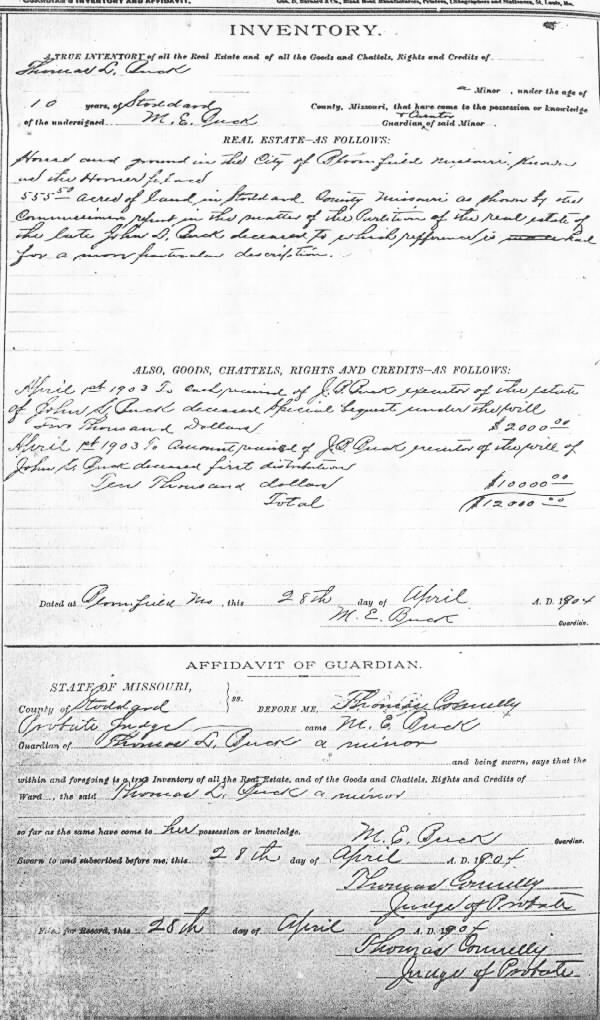 GUARDIAN'S INVENTORY AND AFFIDAVIT.
INVENTORY.
A TRUE INVENTORY of all the Real Estate and of all the Goods and Chattels, Rights and Credits of
Thomas L. Buck
a Minor, under the age of
10 years, of Stoddard County, Missouri, that have come to the possession or knowledge
& Curator
of the undersigned M. E. Buck Guardian of said Minor
REAL ESTATE—AS FOLLOWS:
House and ground in the City of Bloomfield Missouri, Known
as the Homer
555 50 acres of land in Stoddard County Missouri as shown by the
Commissioners report in the matter of the Partition of the real estate of
the late John L. Buck deceased to which refference is had
for a more particular description.
ALSO, GOODS, CHATTELS, RIGHTS AND CREDITS—AS FOLLOWS:
April 1st 1903 To cash received of J. P. Buck executor of the estate
of John L. Buck deceased special bequest under the will
Two Thousand Dollars $2000 00
April 1st 1903 To amount received of J. P. Buck executor of the will of
John L. Buck deceased first distribution
Ten Thousand dollars $10000 00
Total $12000 00
Dated at Bloomfield Mo, this 28th day of April A. D. 1904
M. E. Buck
Guardian.
AFFIDAVIT OF GUARDIAN.
STATE OF MISSOURI,
County of Stoddard } ss. BEFORE ME, Thomas Connelly
Probate Judge came M. E. Buck
Guardian of Thomas L. Buck a minor
and being sworn, says that the
within and foregoing is a true Inventory of all the Real Estate, and of the Goods and Chattels, Rights and Credits of
Ward, the said Thomas L. Buck a minor
so far as the same have come to her possession or knowledge.
M. E. Buck Guardian.
Sworn to and subscribed before me, this 28th day of April A. D. 1904
Thomas Connelly
Judge of Probate
Filed for Record, this 28th day of April A. D. 1904
Thomas Connelly
Judge of Probate